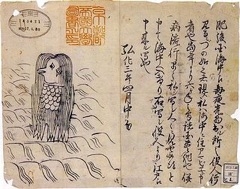 肥後国海中え毎夜光物出ル所之役人行
見るニづの如之者現ス私ハ海中ニ住アマビヱト申
者也当年より六ヶ年之間諸国豊作也併
病流行早々私シ写シ人々ニ見セ候得と
申て海中へ入けり右ハ写シ役人より江戸え
申来ル写也
弘化三年四月中旬